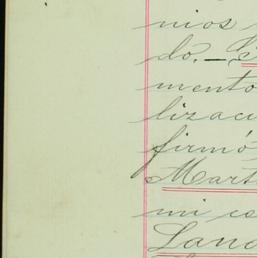 nios
do. —
mento
lizaci
firmó
Mart
mi es
Land